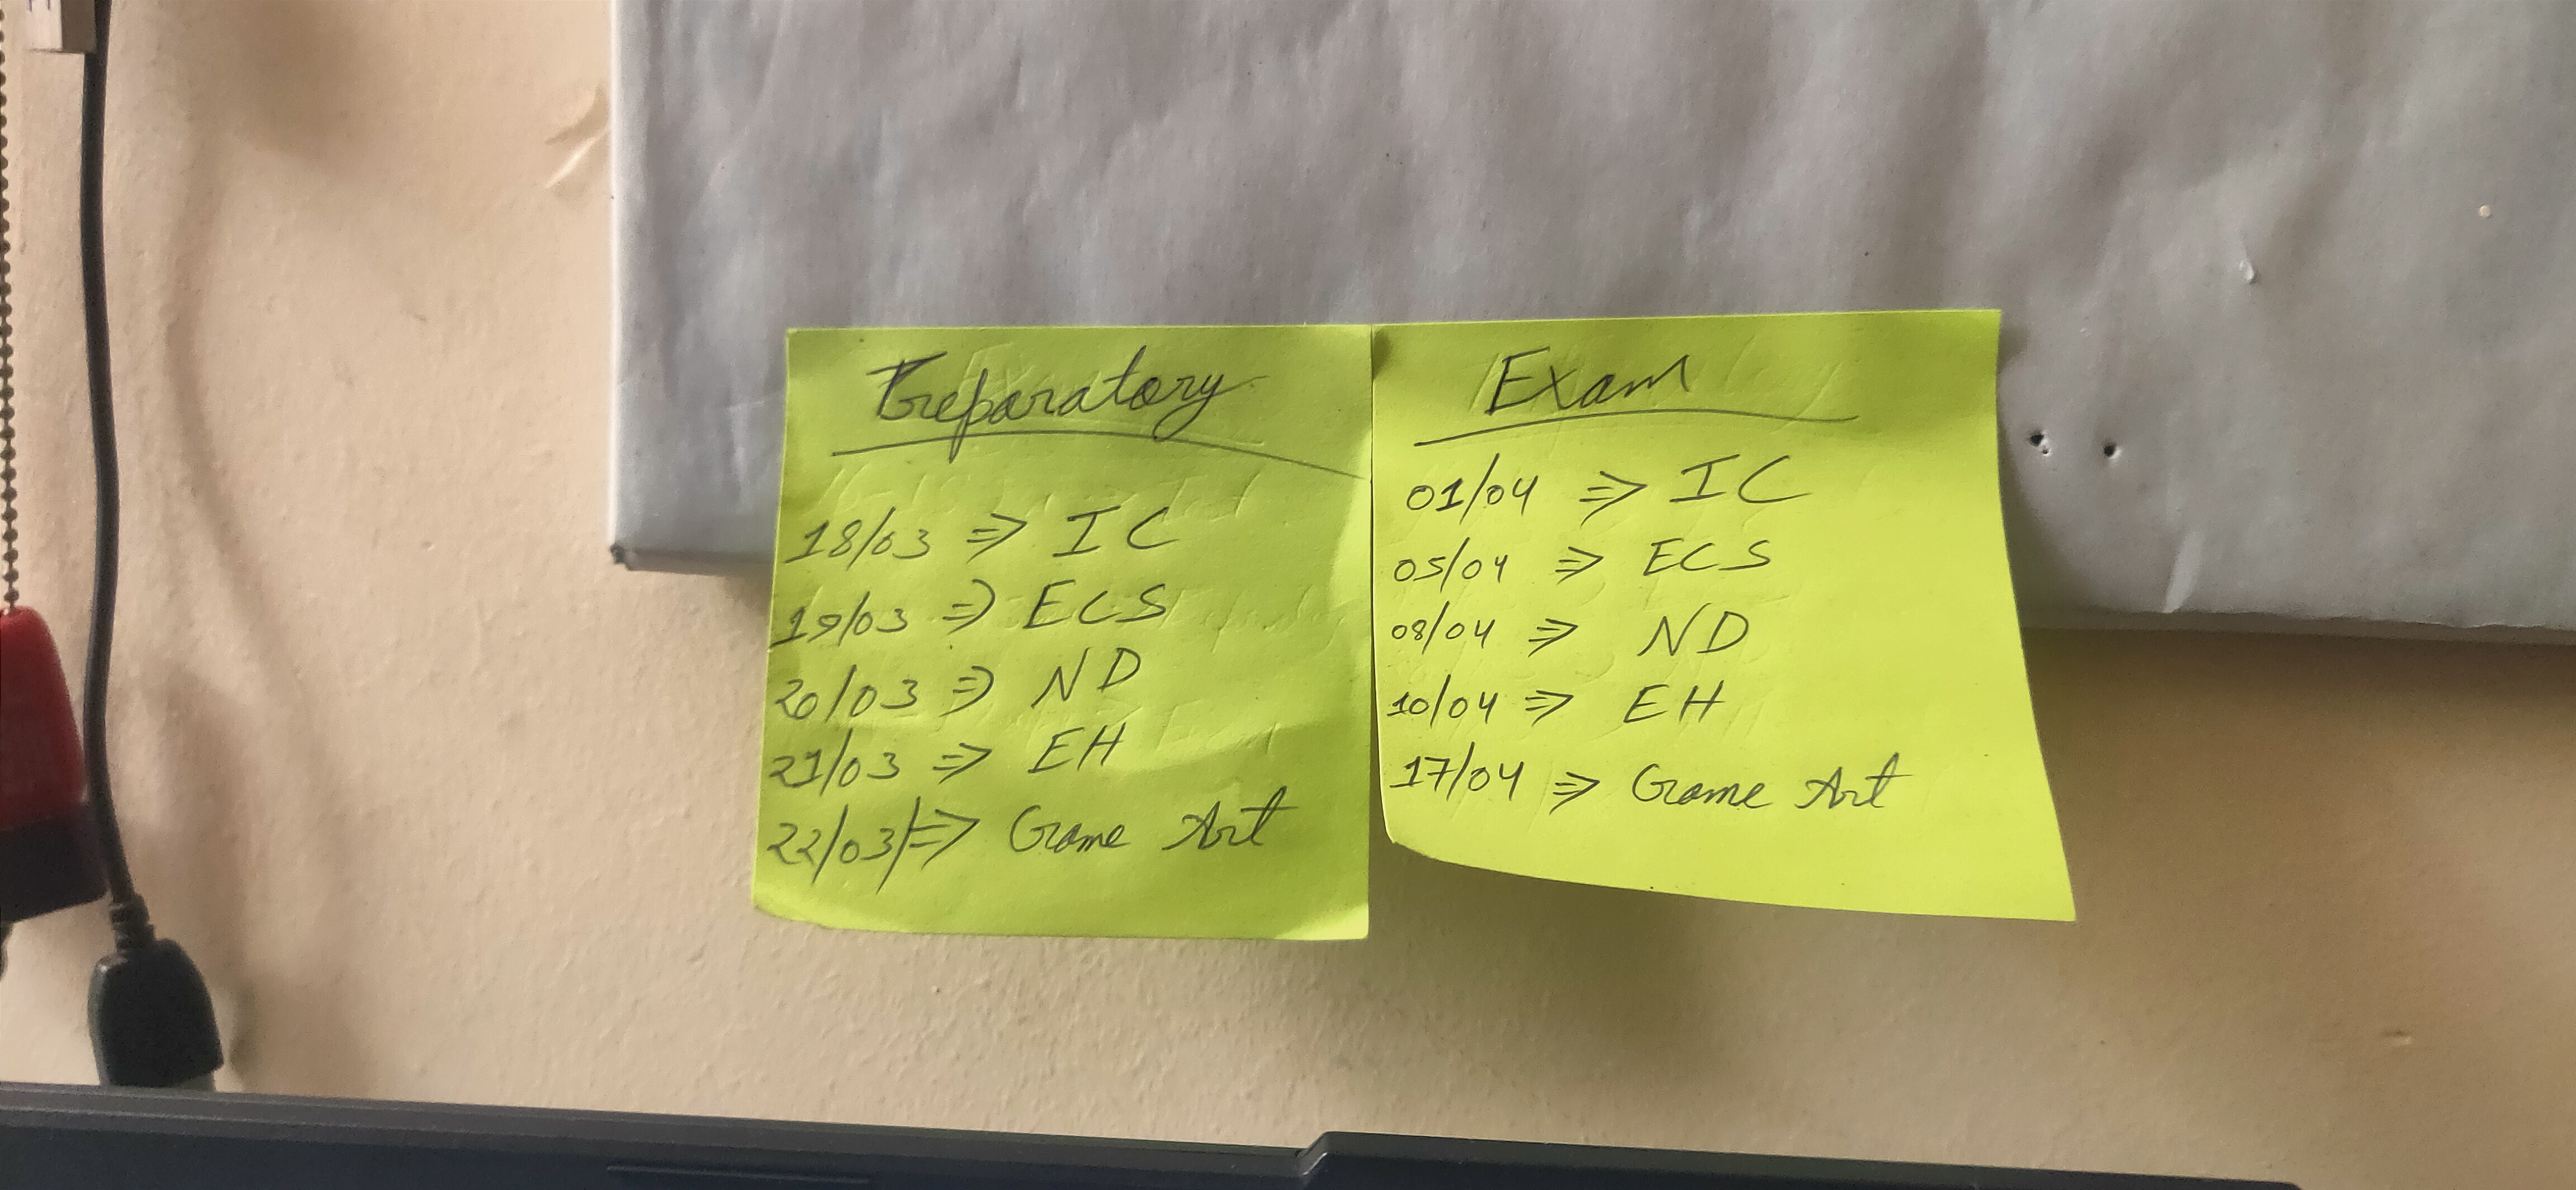 Preparatory
18/03 => IC
19/03 => ECS
20/03 => ND
21/03 => EH
22/03 => Game Art
Exam
01/04 => IC
05/04 => ECS
08/04 => ND
10/04 => EH
17/04 => Game Art